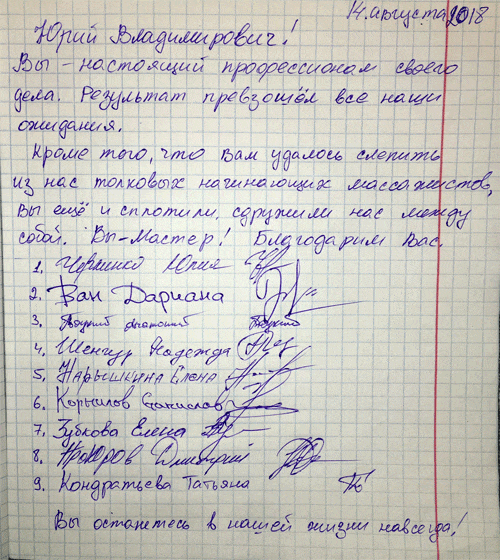 14 августа 2018
Юрий Владимирович!
Вы - настоящий профессионал своего
дела. Результат превзошёл все наши
ожидания.
Кроме того, что Вам удалось слепить
из нас толковых начинающих массажистов,
Вы ещё и сплотили, сдружили нас между
собой. Вы - Мастер! Благодарим Вас.
1. Юлия
2. Ван Дариана
3.
4. Шенгур Надежда
5. Нарышкина Елена
6. Корнилов Станислав
7. Зубкова Елена
8. Прохоров Дмитрий
9. Кондратьева Татьяна
Вы останетесь в нашей жизни навсегда!